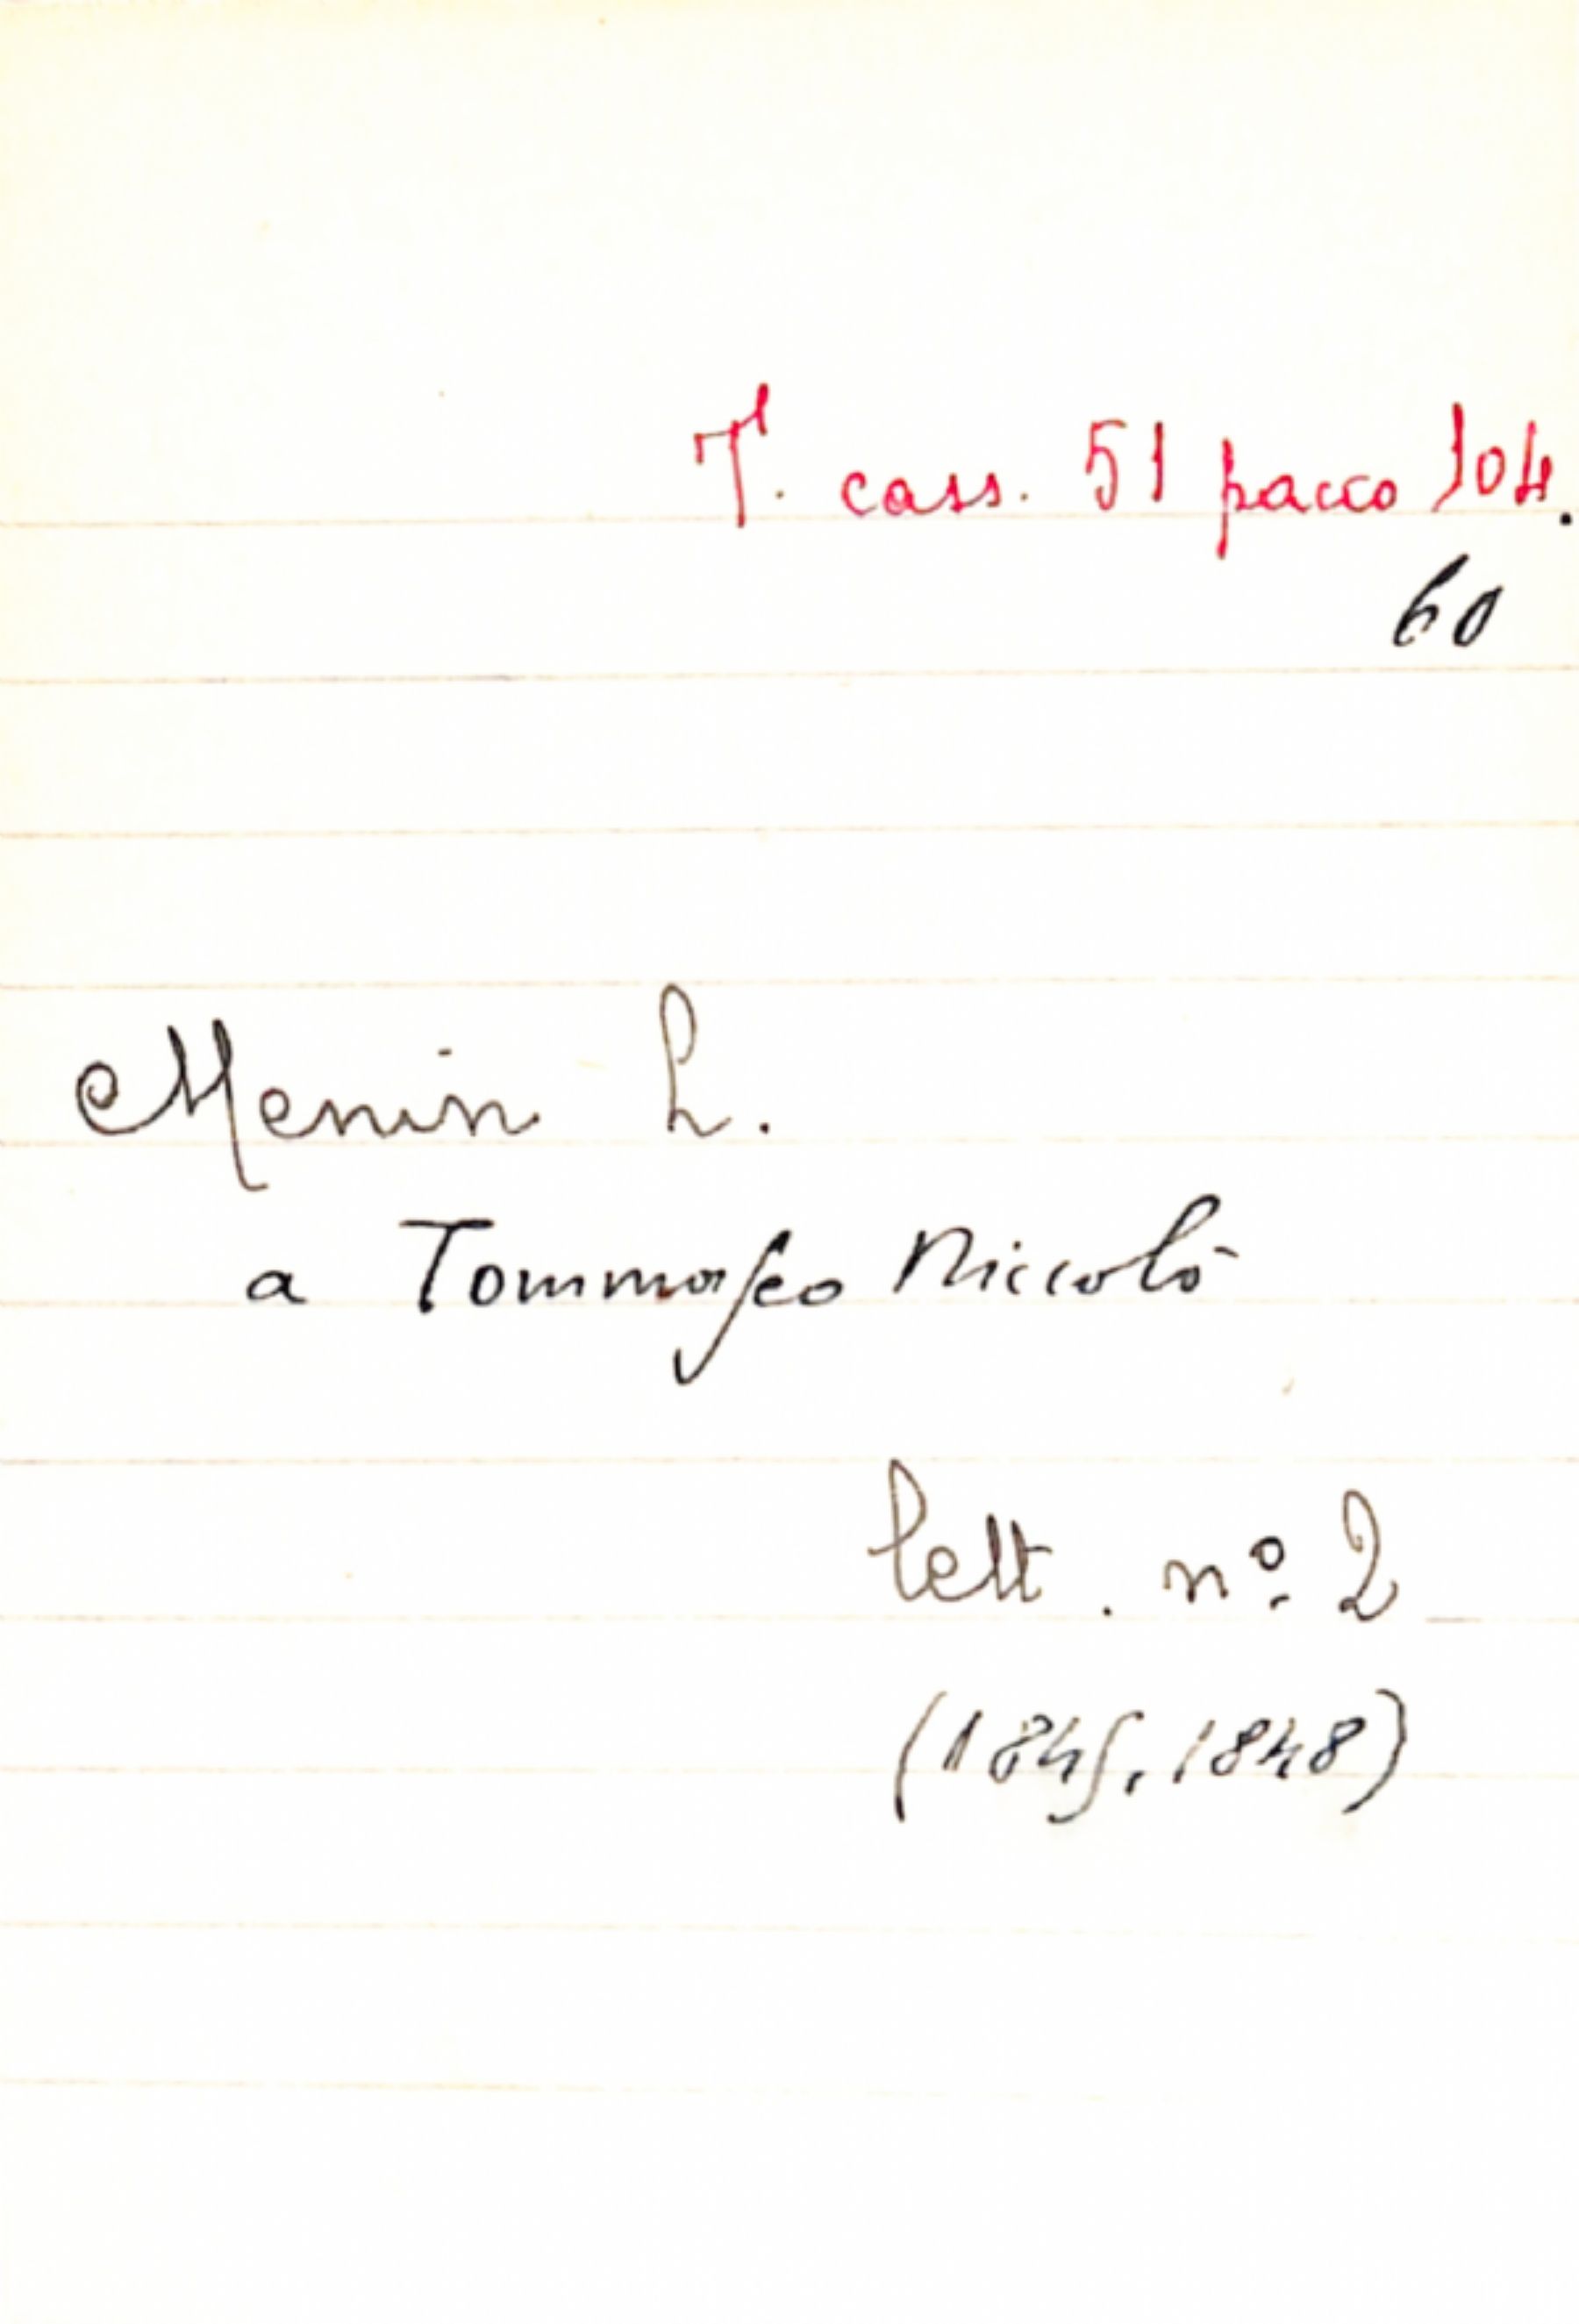 T. cass. 51 pacco 104.
60
Menin L.
a Tommaseo Niccolò
lett. nº 2
(1845, 1848)